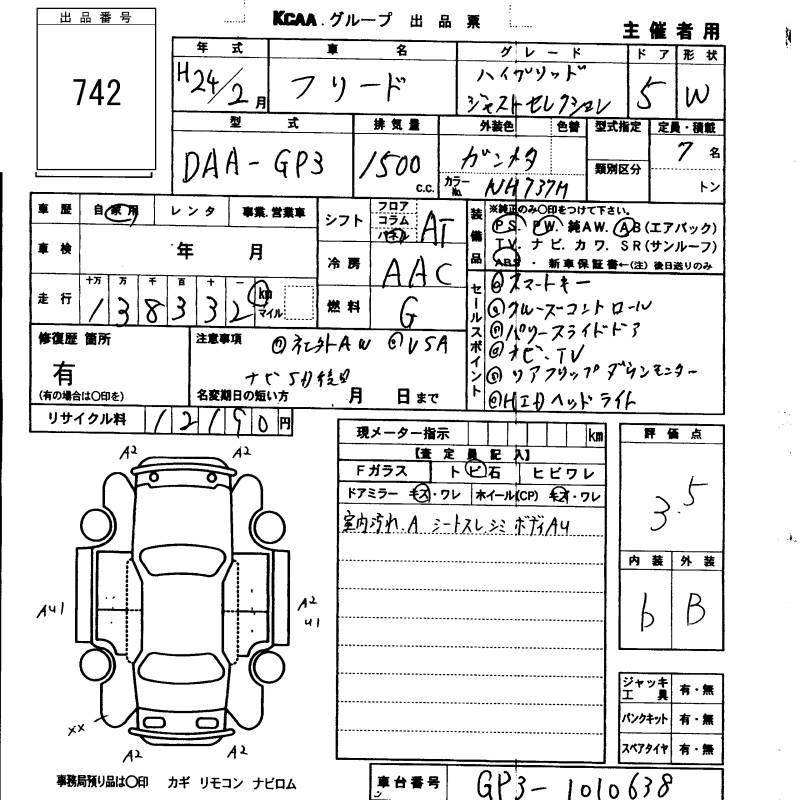 出品番号
742
KCAA.グループ 出品票
主催者用
年式 車名 グレード ドア 形状
H24/2月 フリード ハイブリッド ジャストセレクション 5 W
型式 排気量 外装色 色替 型式指定 定員・積載
DAA-GP3 1500 c.c. ガンメタ 類別区分 7名
カラーNo. NH737M トン
車歴 自家用 レンタ 事業.営業車
車検 年 月
走行 十万 万 千 百 十 一
138332 km マイル
シフト フロア コラム パネル AT
冷房 AAC
燃料 G
装備品 ※純正のみ〇印をつけて下さい。
PS. PW. 純AW. AB(エアバック)
TV. ナビ. カワ. SR(サンルーフ)
ABS ・ 新車保証書←(注) 後日送りのみ
セールスポイント
スマートキー
クルーズコントロール
パワースライドドア
ナビ.TV
リアフリップダウンモニター
HIDヘッドライト
修復歴 箇所
有
(有の場合は〇印を)
注意事項
AW USA
ナビ 5/1後日
名変期日の短い方 月 日まで
リサイクル料 12190円
現メーター指示 km
【査定員記入】
Fガラス トビ石 ヒビワレ
ドアミラー キズ・ワレ ホイール(CP) キズ・ワレ
室内汚れ.A シートスレ.シミ ボディAU
評価点
3.5
内装 外装
b B
A2 A2
AU1 A2
U1
XX A2 A2
ジャッキ工具 有・無
パンクキット 有・無
スペアタイヤ 有・無
事務局預り品は〇印 カギ リモコン ナビロム
車台番号 GP3-1010638